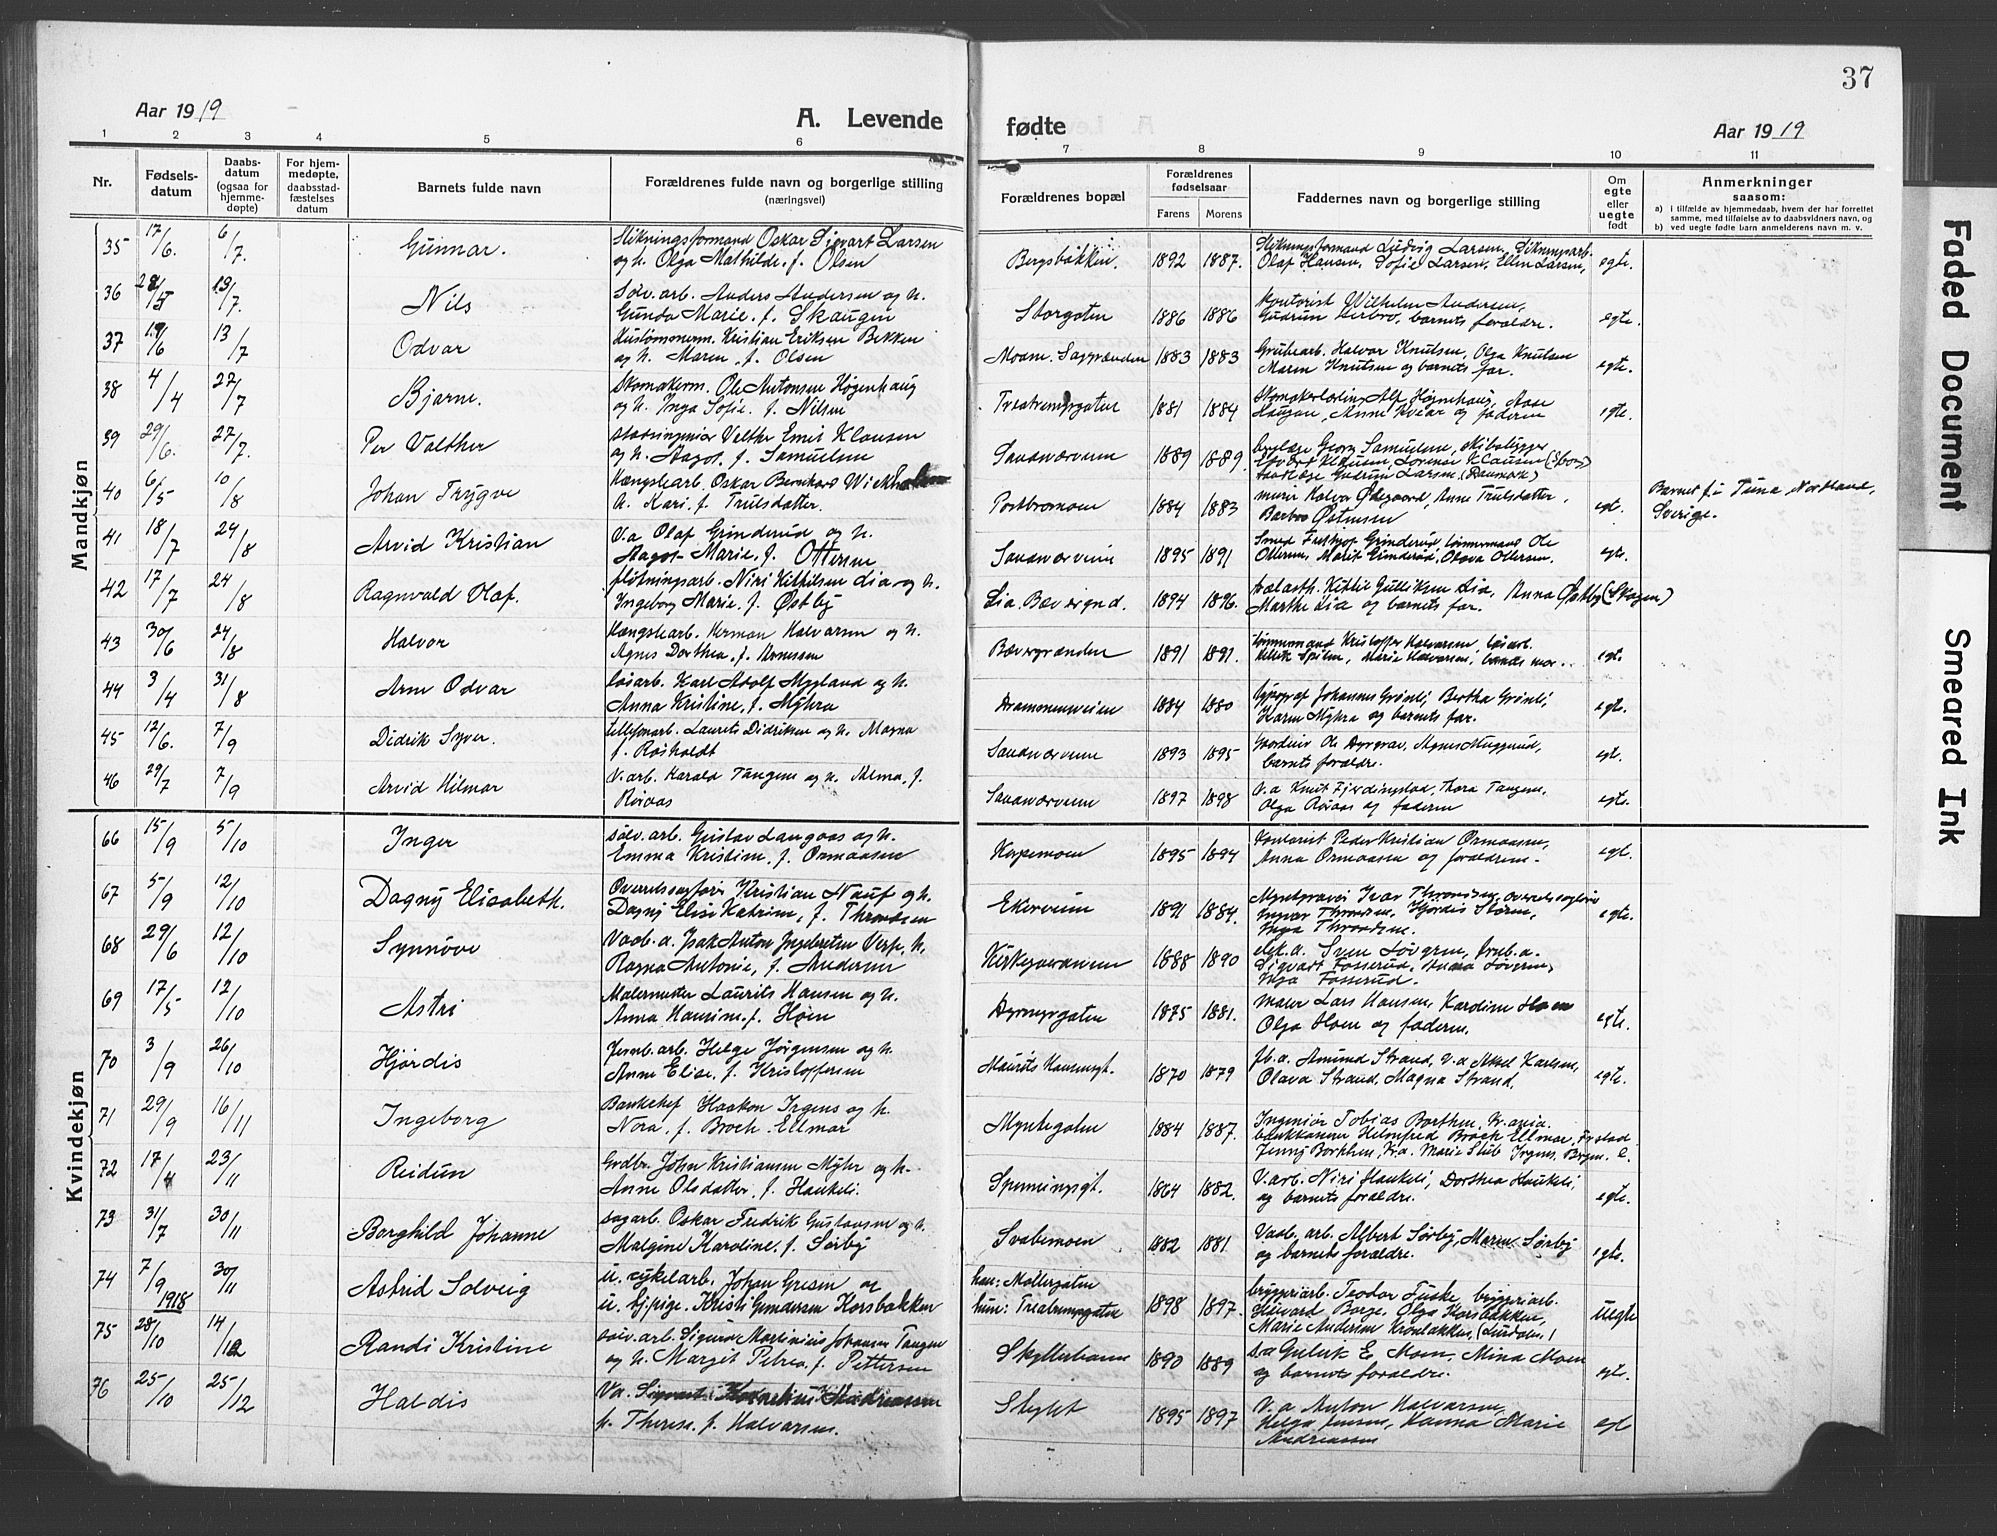 37
Aar 1919
A. Levende
fødte
Aar 1919
1 2 3 4 5 6 7 8 9 10 11
Nr.
Fødselsdatum
Daabsdatum (ogsaa for hjemmedøpte)
For hjemmedøpte, daabsstadfæstelses datum
Barnets fulde navn
Forældrenes fulde navn og borgerlige stilling (næringsvei)
Forældrenes bopæl
Forældrenes fødselsaar
Farens Morens
Faddernes navn og borgerlige stilling
Om egte eller uegte født
Anmerkninger saasom:
a) i tilfælde av hjemmedaab, hvem der har forrettet samme, med tilføielse av to daabsvidners navn, og
b) ved uegte fødte barn anmelderens navn m. v.
Mandkjøn
35 17/6. 6/7. Gunnar. Stikningsformand Oskar Sigvart Larsen
og h. Olga Mathilde f. Olsen Bergsbakken. 1892 1887. Stikningsformand Ludvig Larsen,
Olaf Hansen, Sofie Larsen, Ellen Larsen, egte.
36 28/5 13/7 Nils Sølv.arb. Anders Andersen og h.
Gunda Marie, f. Skaugen Storgaten 1886 1886 Kontorist Wilhelm Andersen,
Gudrun barnets foraldre. egte.
37 19/6 13/7 Odvar Kristian Eriksen Bekken
og h. Maren, f. Olsen 1883 1883 Grubearb. Halvor Knutsen, Olga Knutsen
Maren Knutsen og barnets far. egte.
38 4/4 27/7 Bjarne. Skomakerm. Ole Antonsen Høgenhaug
og h. Inga Sofie f. Nilsen 1881 1884 Alf Høgenhaug, Aase
Haugan, Anne og faderen egte.
39 29/6. 27/7. Per Valther Stadsingeniør Valther Emil Klausen
og h. Aagot f. Samuelsen Sandsværveien 1889 1889. Georg Samuelsen,
Klausen, Lorense Klausen
Gudrun Larsen (Danmark)
40 6/5 10/8 Johan Trygve Fængselsarb. Oskar Bernhard
h. Kari f. Trulsdatter. 1884 1883 murer Halvor Ødegaard, Anne Trulsdatter,
Barbro Østensen egt. Barnet f. i Tuna Nordland,
Sverige.
41 18/7 24/8 Arvid Kristian V.a Olaf Grinderud og h.
Aagot Marie, f. Ottersen Sandsværveien 1895 1891 Smed Fridtjof Grinderud, Ole
Ottersen, Marit Grinderud, Olava Ottersen. egte.
42 17/7 24/8 Ragnvald Olaf. fløtningsarb. Niri Kittilsen Lia og h.
Ingeborg Marie, f. Østby Lia. 1894 1896. Kittil Gulliksen Lia, Anna Østby (Skogen)
Marthe Lia og barnets far. egte.
43 30/6 24/8 Halvor Fængselsarb. Herman Halvorsen og h.
Agnes Dorthea, f. Arnessen Bævergrænden 1891 1891. Kristoffer Halvorsen,
Marie Halvorsen, barnets mor. egt.
44 3/4 31/8 Arne Odvar Karl Adolf Mygland og h.
Anna Kristine, f. Myhra Drammensveien 1884 1880 typograf Johannes Grønli, Bertha Grønli,
Karen Myhra og barnets far. egte.
45 12/6. 7/9 Didrik Syver. Laurits Didriksen og h. Magna
f. Rosholdt Sandsværveien 1893 1895 Ole Dyrgrav, Agnes Muggerud,
barnets foraldre. egt.
46 29/7 7/9 Arvid Hilmar V.arb. Harald Tangen og h. Alma, f.
Røraas Sandsværveien 1897 1898 V.a Knut Fjerdingstad, Thora Tangen,
Olga Røraas og faderen egte.
Kvindekjøn
66 15/9 5/10 Inger Sølv.arb. Gustav Langaas og h.
Emma Kristine, f. Ormaasen 1895 1894 Kontorist Peder Kristian Ormaasen,
Anna Ormaasen og foraldrene. egt.
67 5/9 12/10 Dagny Elisabeth. Overretssagfører Kristian Nauf og h.
Dagny Elise Katrine, f. Throndsen Ekerveien 1891 1884. Myntgravør Ivar Throndsen, overretssagfører
Ingvar Throndsen, Hjørdis Størm,
Inga Throndsen. egte.
68 29/6 12/10 Synnøve Vaab.a. Isak Anton Ingebretsen Verp, h.
Ragna Antonie, f. Andersen Kirkegaardsveien 1888 1890 elek.a. Sven Løvgren, Jernb.a.
Sigvart Fosserud, Anna Løvgren,
Inga Fosserud.
69 17/5 12/10 Astri Malermester Laurits Hansen og h.
Anna Haurine, f. Hoen Dyrmyrgaten 1875 1881. Maler Lars Hansen, Karoline Hoen
Olga Hoen og faderen. egte.
70 3/9 26/10 Hjørdis Jernb.arb. Helge Jørgensen og h.
Anne Elise, f. Kristoffersen Maurits Hansensgt. 1870 1879 Jb.a. Amund Strand, V.a Aksel Karlsen,
Olava Strand, Magna Strand. egte.
71 29/9 16/11 Ingeborg Bankchef Haakon Irgens og h.
Nora, f. Broch Ellmar Myntegaten 1884 1887. Ingeniør Tobias Borthen, Kr.ania.
bankkasserer Helmfred Broch Ellmar,
Jenny Borthen, Kr.a. Marie Stub Irgens, Bergen. e.
72 17/4 23/11 Reidun Grdbr. John Kristiansen Myhr og h.
Anne Olsdatter, f. Haukeli. 1864 1882. V.arb. Niri Haukeli, Dorthea Haukeli,
og barnets foraldre. egte.
73 31/7 30/11 Borghild Johanne Sagarb. Oskar Fredrik Gustavsen og h.
Malgine Karoline, f. Sørby Svabemoen 1882 1881. Vaab. arb. Albert Sørby, Maren Sørby
og barnets foraldre. egte.
74 7/9 1918 30/11 Astrid Solveig u. cykelarb. Johan Gresen og
u. tj.pige. Kristi Gundersen Korsbakken han: Møllergaten
hun: 1898 1897. bryggeriarb. Teodor Fuske, bryggeriarb.
Borge, Olga Korsbakken,
Marie Andersen uegte
75 28/10 14/12 Randi Kristine Sølv.arb. Sigurd Martinius Johansen Tangen
og h. Margit Petrea, f. Pettersen Skytterbanen 1890 1889 E Moen, Mina Moen
og barnets foraldre. egte.
76 25/10 25/12 Haldis Va. Sigvart Kornelius Andreassen
h. Therese, f. Halvorsen. 1895 1897 V.a Anton Halvorsen,
Helga Jensen, Hanna Marie
Andreassen egt
Faded Document
Smeared Ink